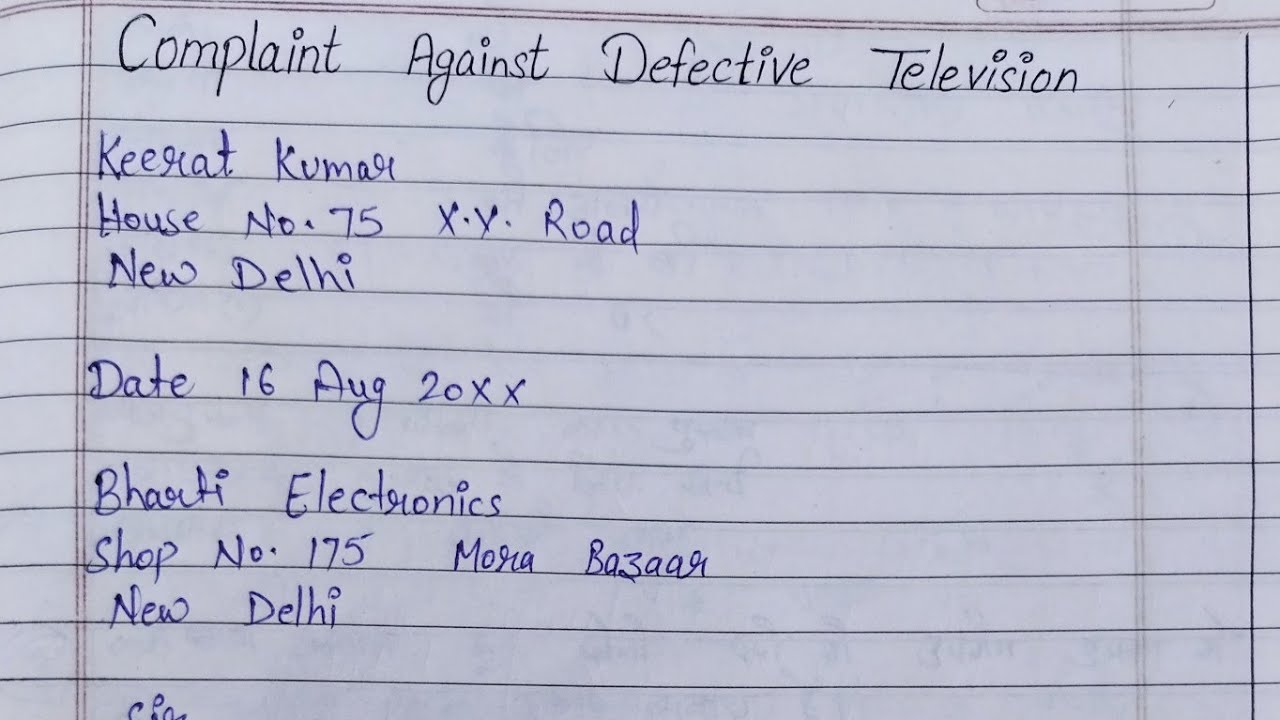 Complaint Against Defective Television
Keerat Kumar
House No. 75 X.Y. Road
New Delhi
Date 16 Aug 20XX
Bharti Electronics
Shop No. 175 Mora Bazaar
New Delhi